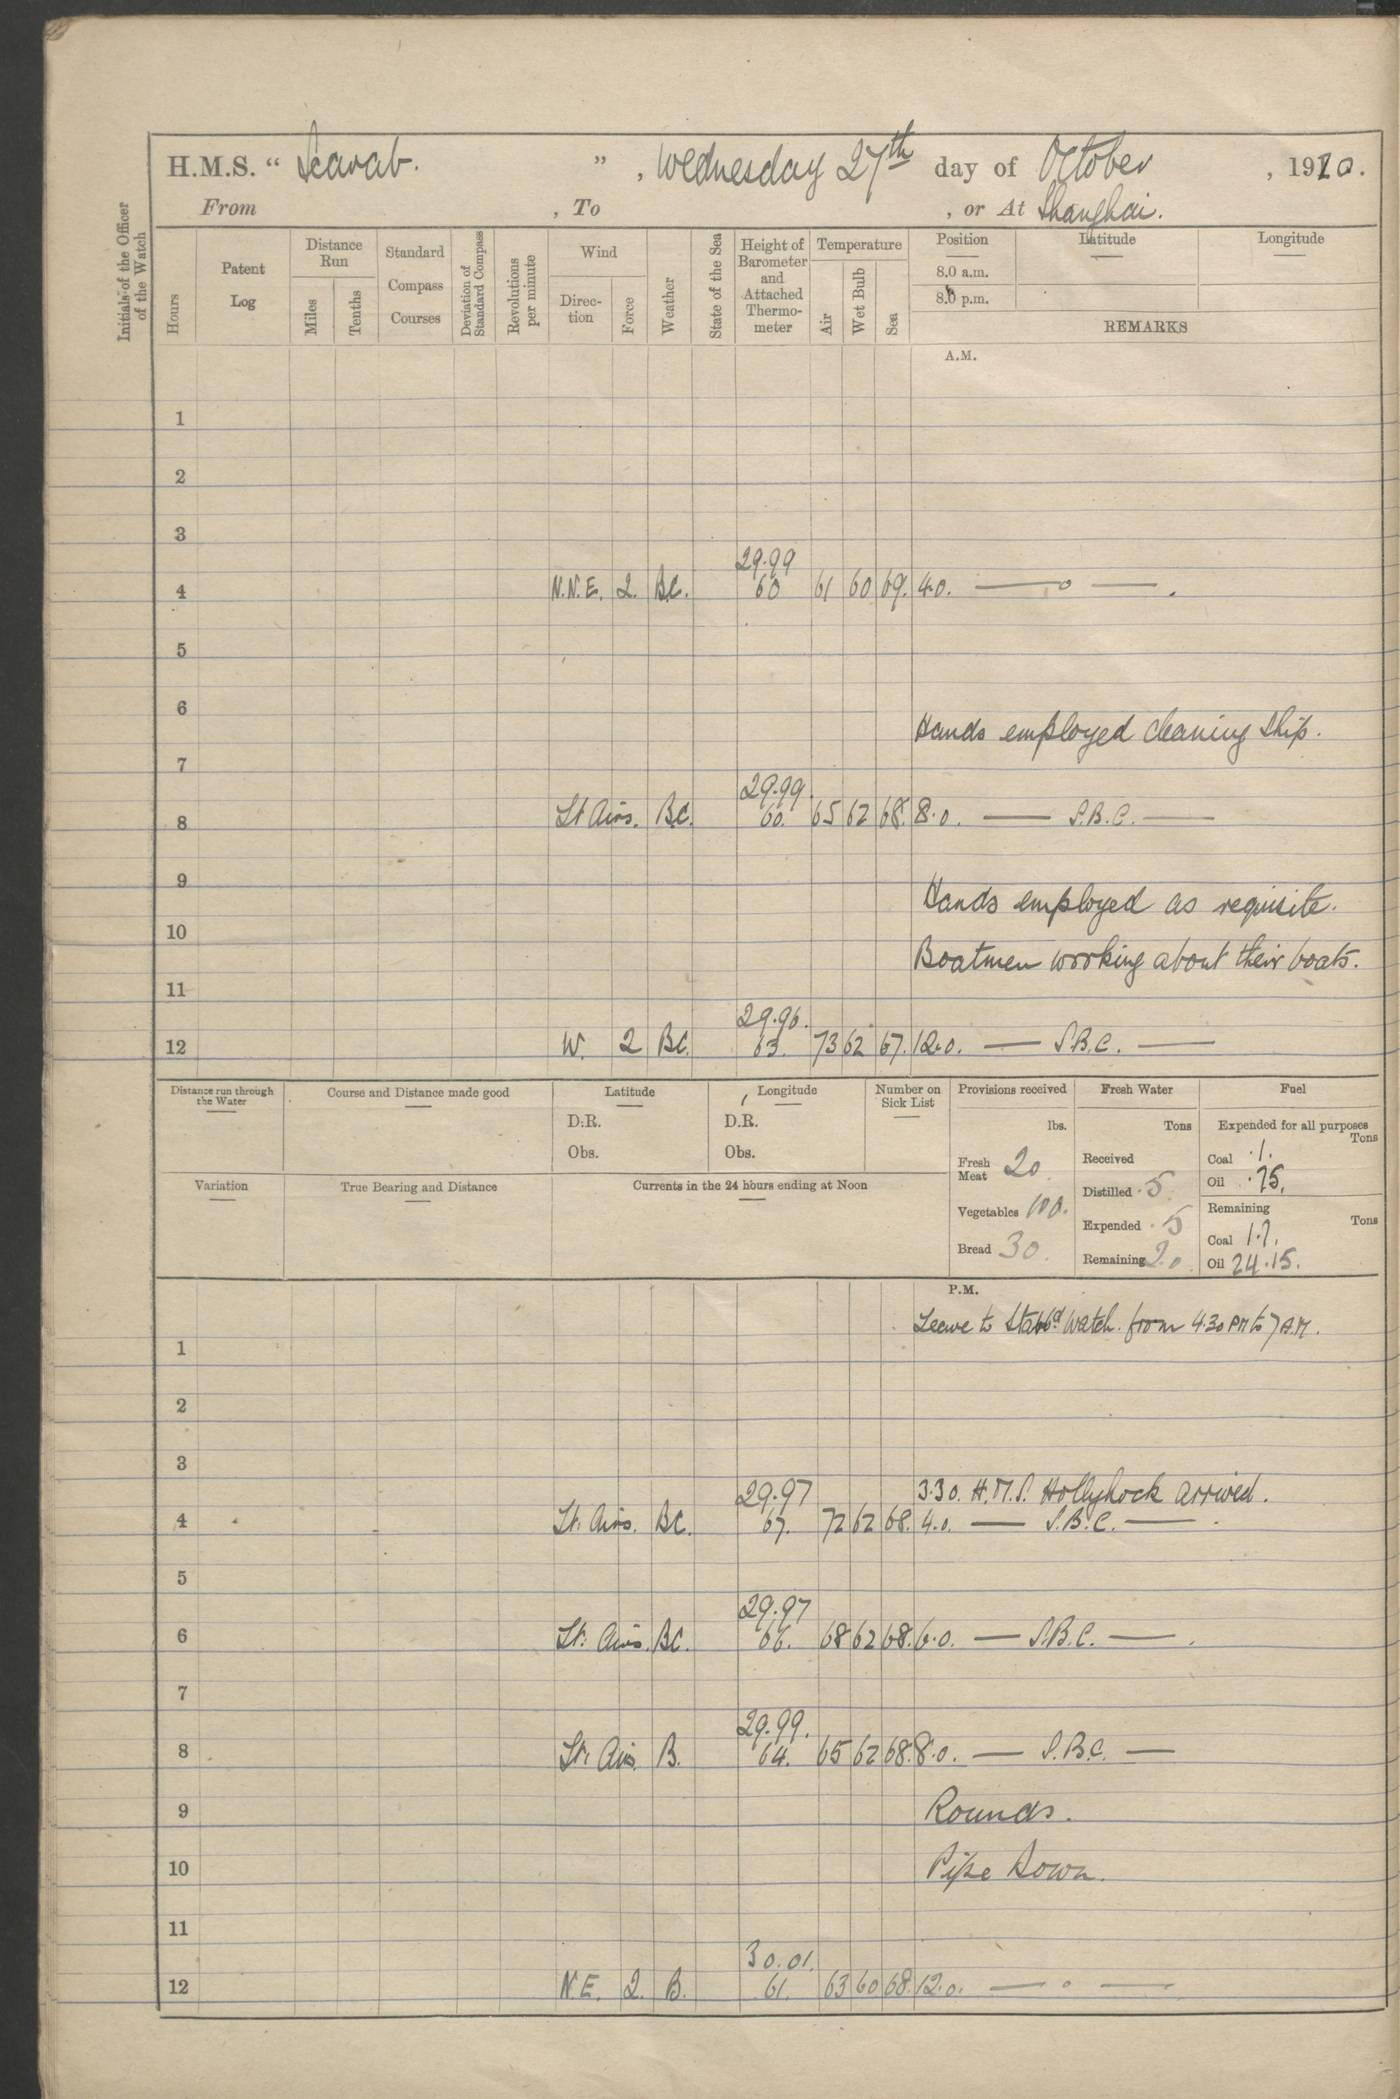 H.M.S. “ Scarab. ” , Wednesday 27th day of October , 1920.
From , To , or At Shanghai.
Initials of the Officer of the Watch
Hours
Patent Log
Distance Run
Miles
Tenths
Standard Compass Courses
Deviation of Standard Compass
Revolutions per minute
Wind
Direc-tion
Force
Weather
State of the Sea
Height of Barometer and Attached Thermo-meter
Temperature
Air
Wet Bulb
Sea
Position Latitude Longitude
8.0 a.m.
8.0 p.m.
REMARKS
A.M.
1
2
3
29.99
4 N.N.E. 2. B.C. 60 61 60 69. 4.0. — o — .
5
6
Hands employed cleaning Ship.
7
29.99.
8 Lt Airs. BC. 60. 65 62 68. 8.0. — S.B.C. —
9
Hands employed as requisite.
10
Boatmen working about their boats.
11
29.96.
12 W. 2 BC. 63. 73 62 67. 12.0. — S.B.C. —
Distance run through the Water
Course and Distance made good
Latitude
D.R.
Obs.
Longitude
D.R.
Obs.
Number on Sick List
Provisions received
lbs.
Fresh Meat 20
Vegetables 100.
Bread 30.
Fresh Water
Tons
Received
Distilled .5
Expended .5
Remaining 20
Fuel
Expended for all purposes
Tons
Coal .1.
Oil .75.
Remaining
Tons
Coal 1.7.
Oil 24.15.
Variation
True Bearing and Distance
Currents in the 24 hours ending at Noon
P.M.
Leave to Starbd Watch. from 4.30 PM to 7 A.M.
1
2
3
29.97 3.30. H.M.S. Hollyhock arrived.
4 Lt. Airs. BC. 67. 72 62 68. 4.0. — S.B.C. — .
5
29.97
6 Lt. Airs. BC. 66. 68 62 68. 6.0. — S.B.C. — .
7
29.99.
8 Lt. Airs. B. 64. 65 62 68. 8.0. — S.B.C. —
9 Rounds.
10 Pipe Down.
11
30.01.
12 N.E. 2. B. 61. 63 60 68. 12.0. — o —